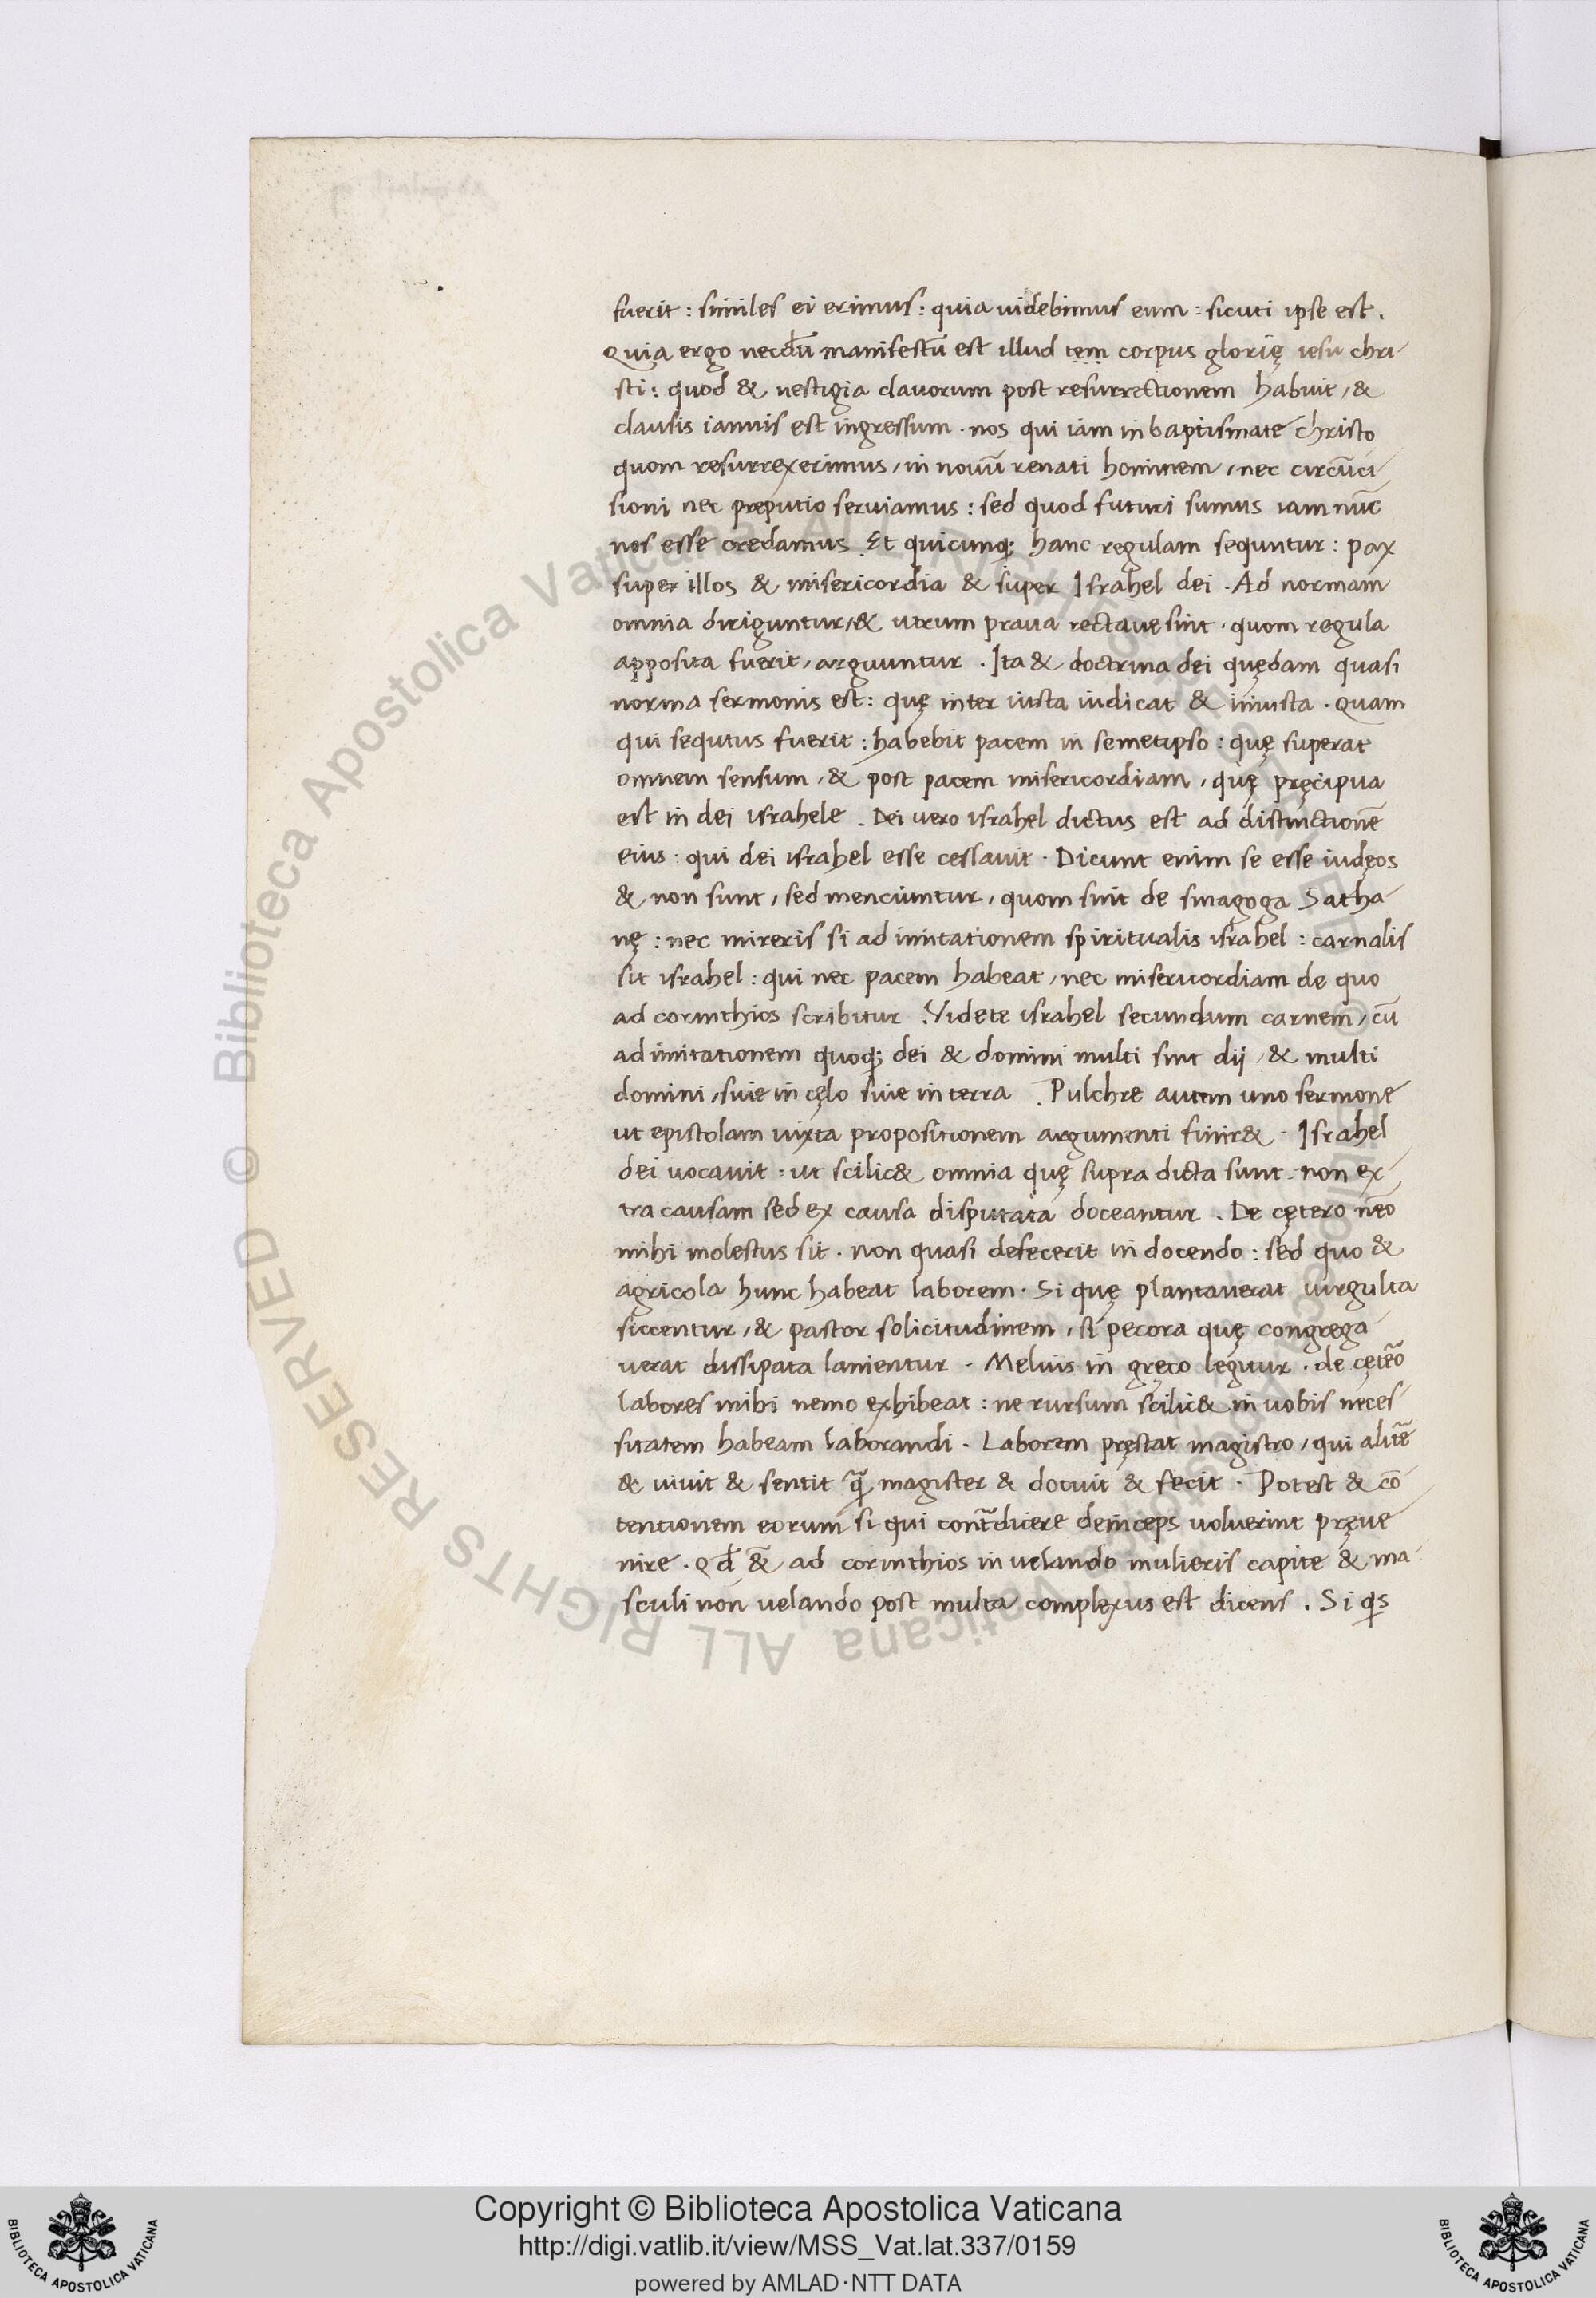 fuerit : similes ei erimus : quia uidebimus eum : sicuti ipse est .
Quia ergo necdū manifestū est illud tem corpus glorię iesu chri-
sti : quod & uestigia clauorum post resurrectionem habuit , &
clausis ianuis est ingressum . nos qui iam in baptismate christo
quom resurrexerimus , in nouū renati hominem , nec circūci-
sioni nec preputio seruiamus : sed quod futuri sumus iam nūc
nos esse credamus . Et quicunq; hanc regulam sequntur : pax
super illos & misericordia & super Israhel dei . Ad normam
omnia diriguntur , & utrum praua rectaue sint . quom regula
apposita fuerit , arguuntur . Ita & doctrina dei quędam quasi
norma sermonis est : quę inter iusta iudicat & iniusta . Quam
qui sequtus fuerit : habebit pacem in semetipso : quę superat
omnem sensum , & post pacem misericordiam , quę pręcipua
est in dei israhele . Dei uero israhel dictus est ad distinctionē
eius : qui dei israhel esse cessauit . Dicunt enim se esse iudęos
& non sunt , sed menciuntur , quom sint de sinagoga Satha-
nę : nec mireris si ad imitationem spiritualis israhel : carnalis
sit israhel : qui nec pacem habeat , nec misericordiam de quo
ad corinthios scribitur . Videte israhel secundum carnem , cū
ad imitationem quoq; dei & domini multi sint dij , & multi
domini , siue in cęlo siue in terra . Pulchre autem uno sermone
ut epistolam iuxta propositionem argumenti finir& . Israhel
dei uocauit : ut scilic& omnia quę supra dicta sunt . non ex-
tra causam sed ex causa disputata doceantur . De cętero nēo
mihi molestus sit . non quasi defecerit in docendo : sed quo &
agricola hunc habeat laborem . Si quę plantauerat uirgulta
siccentur , & pastor solicitudinem , si pecora quę congrega-
uerat dissipata lanientur . Melius in gręco legitur . de cętēo
labores mihi nemo exhibeat : ne rursum scilic& in uobis neces-
sitatem habeam laborandi . Laborem pręstat magistro , qui alitē
& uiuit & sentit q̄ magister & docuit & fecit . Potest & cō-
tentionem eorum si qui cont̄dicere deinceps uoluerint pręue
nire . Qd̄ &̄ ad corinthios in uelando mulieris capite & ma-
sculi non uelando post multa complexus est dicens . Si qis
Copyright © Biblioteca Apostolica Vaticana
http://digi.vatlib.it/view/MSS_Vat.lat.337/0159
powered by AMLAD·NTT DATA
BIBLIOTECA APOSTOLICA VATICANA
BIBLIOTECA APOSTOLICA VATICANA